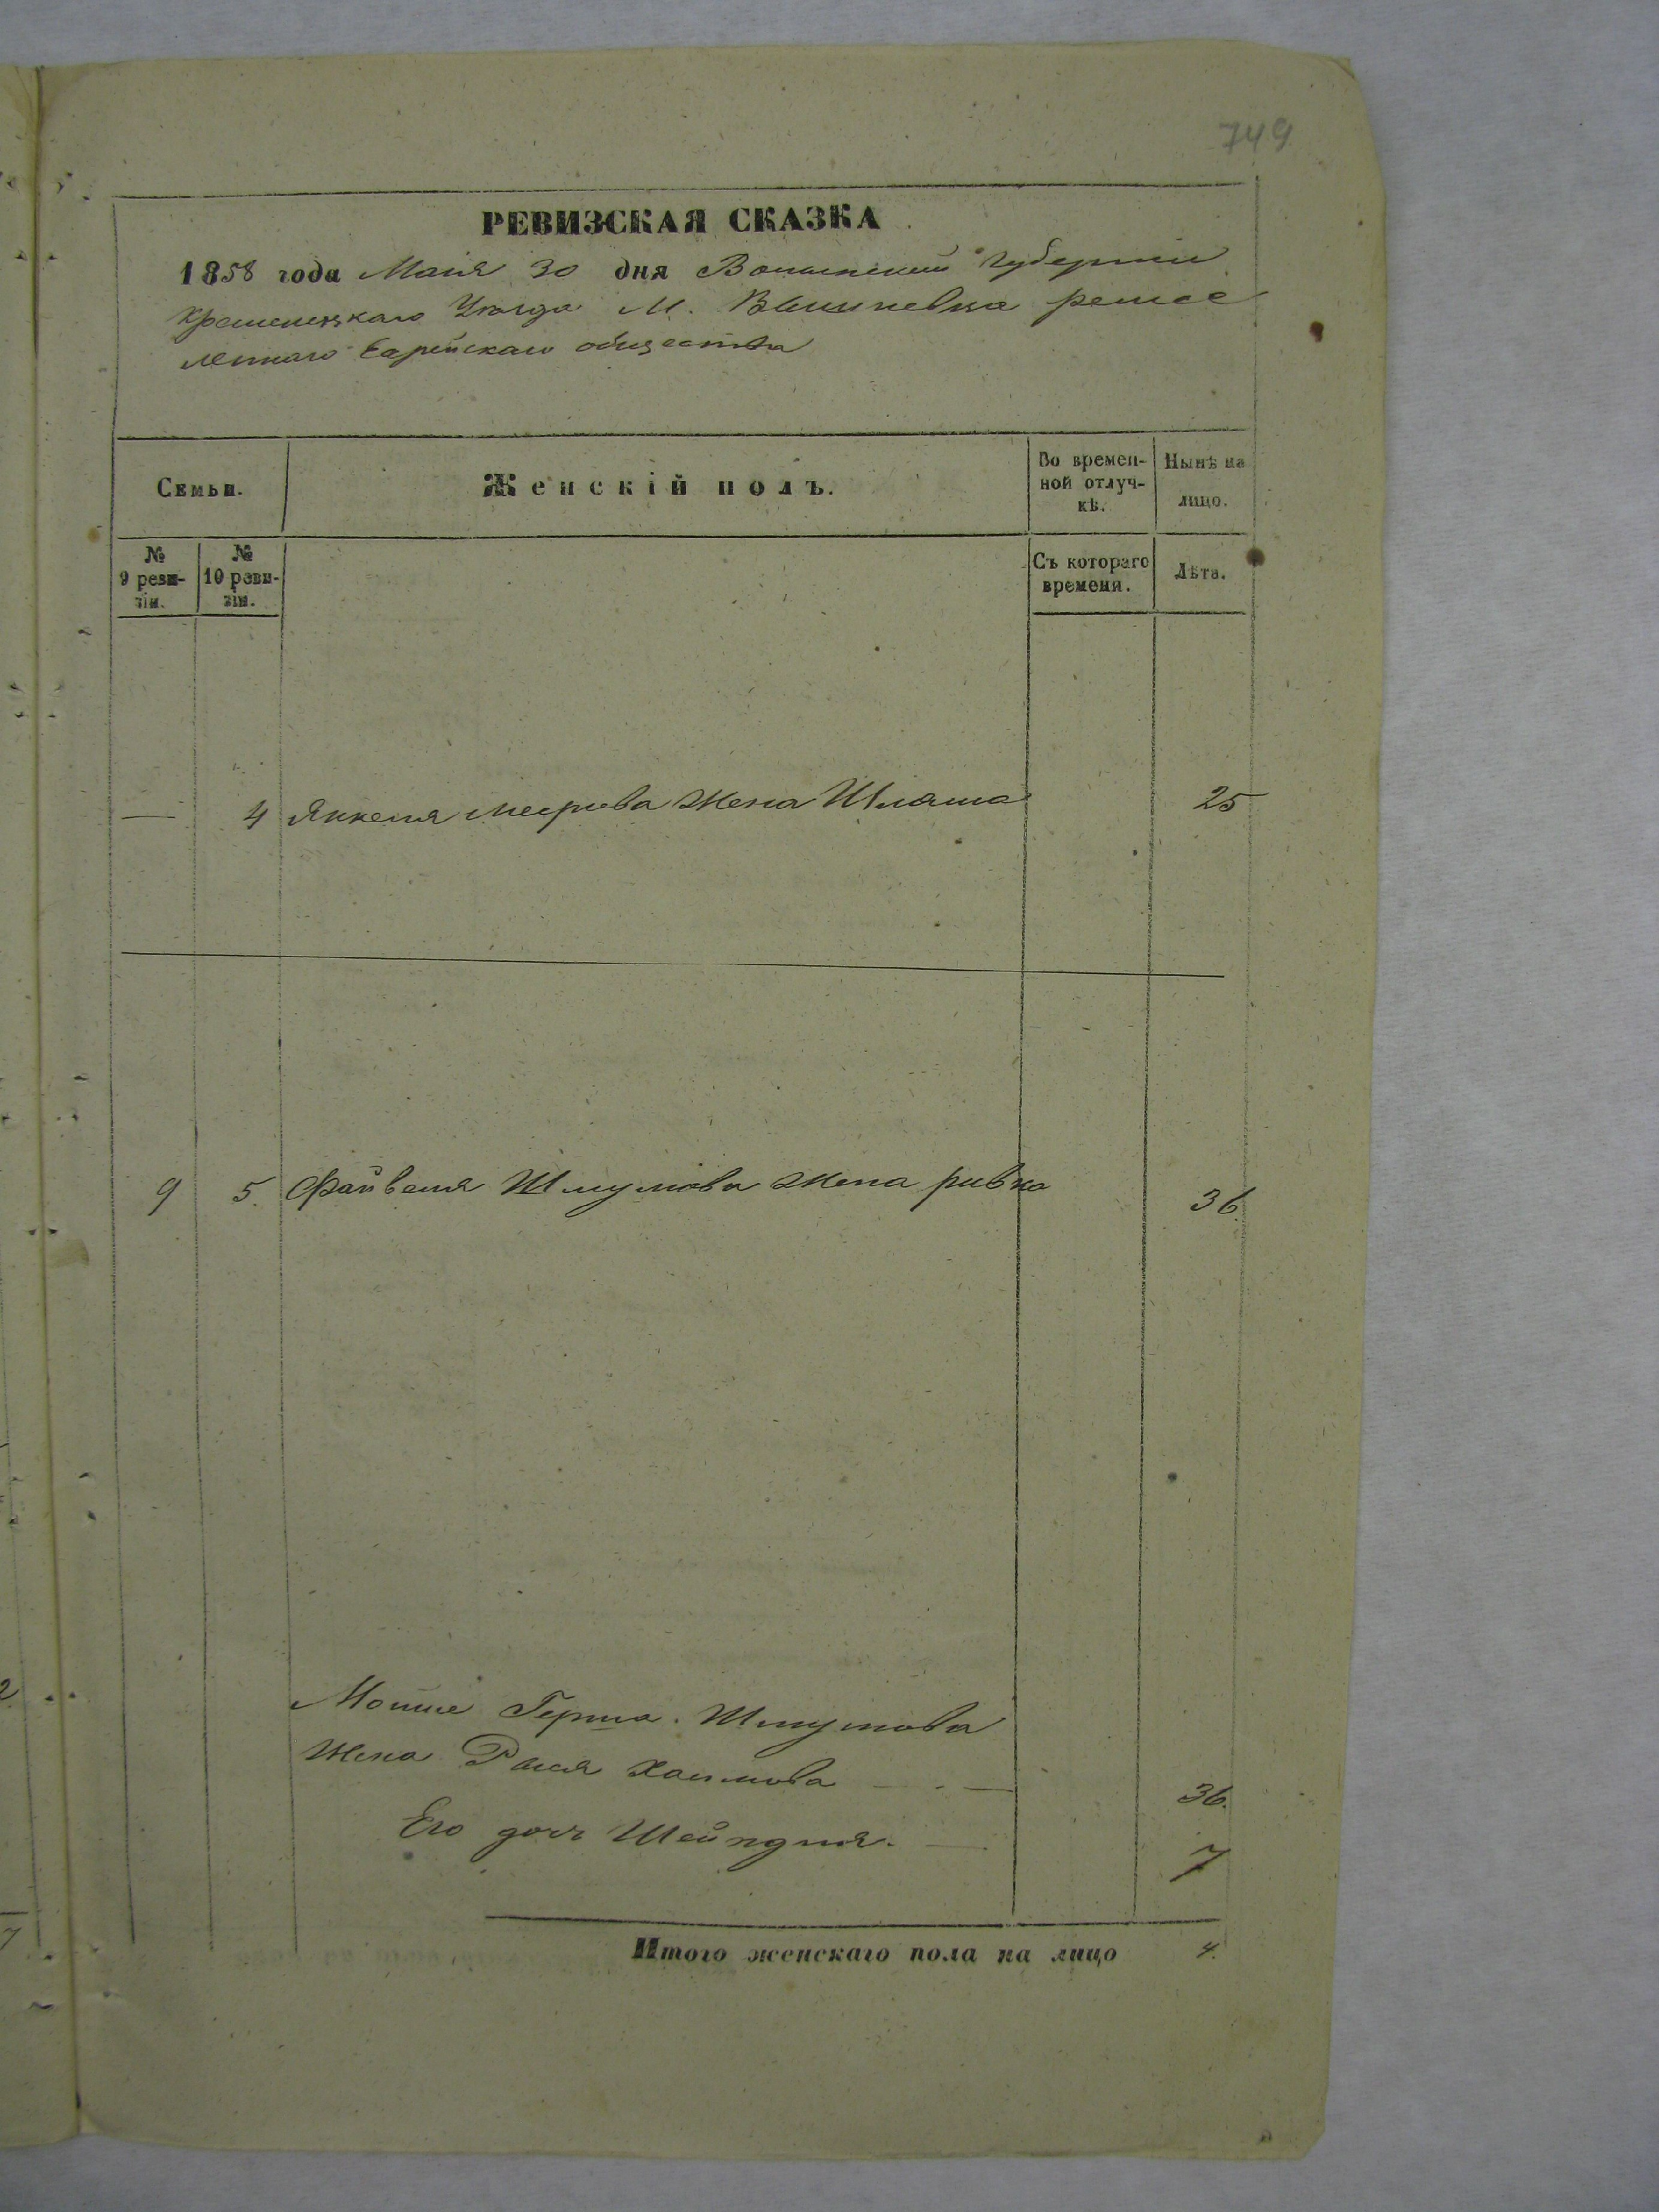 749
РЕВИЗСКАЯ СКАЗКА
1858 года Маия 30 дня Волынской Губернии
Кременецкаго Уѣзда М. Вышневца ремес
леннаго Еврейскаго общества
Семьи.
Женскій полъ.
Во времен-
ной отлуч-
кѣ.
Нынѣ на
лицо.
№
9 реви-
зіи.
№
10 реви-
зіи.
Съ котораго
времени.
Лѣта.
— 4 Янкеля Меерова Жена 25
9 5. Файвеля Шмулова Жена ривка 36.
Мошка Герша Шмулова
Жена Рыся Хаимова 36.
Его дочь Шейндля. 7
Итого женскаго пола на лицо 4.